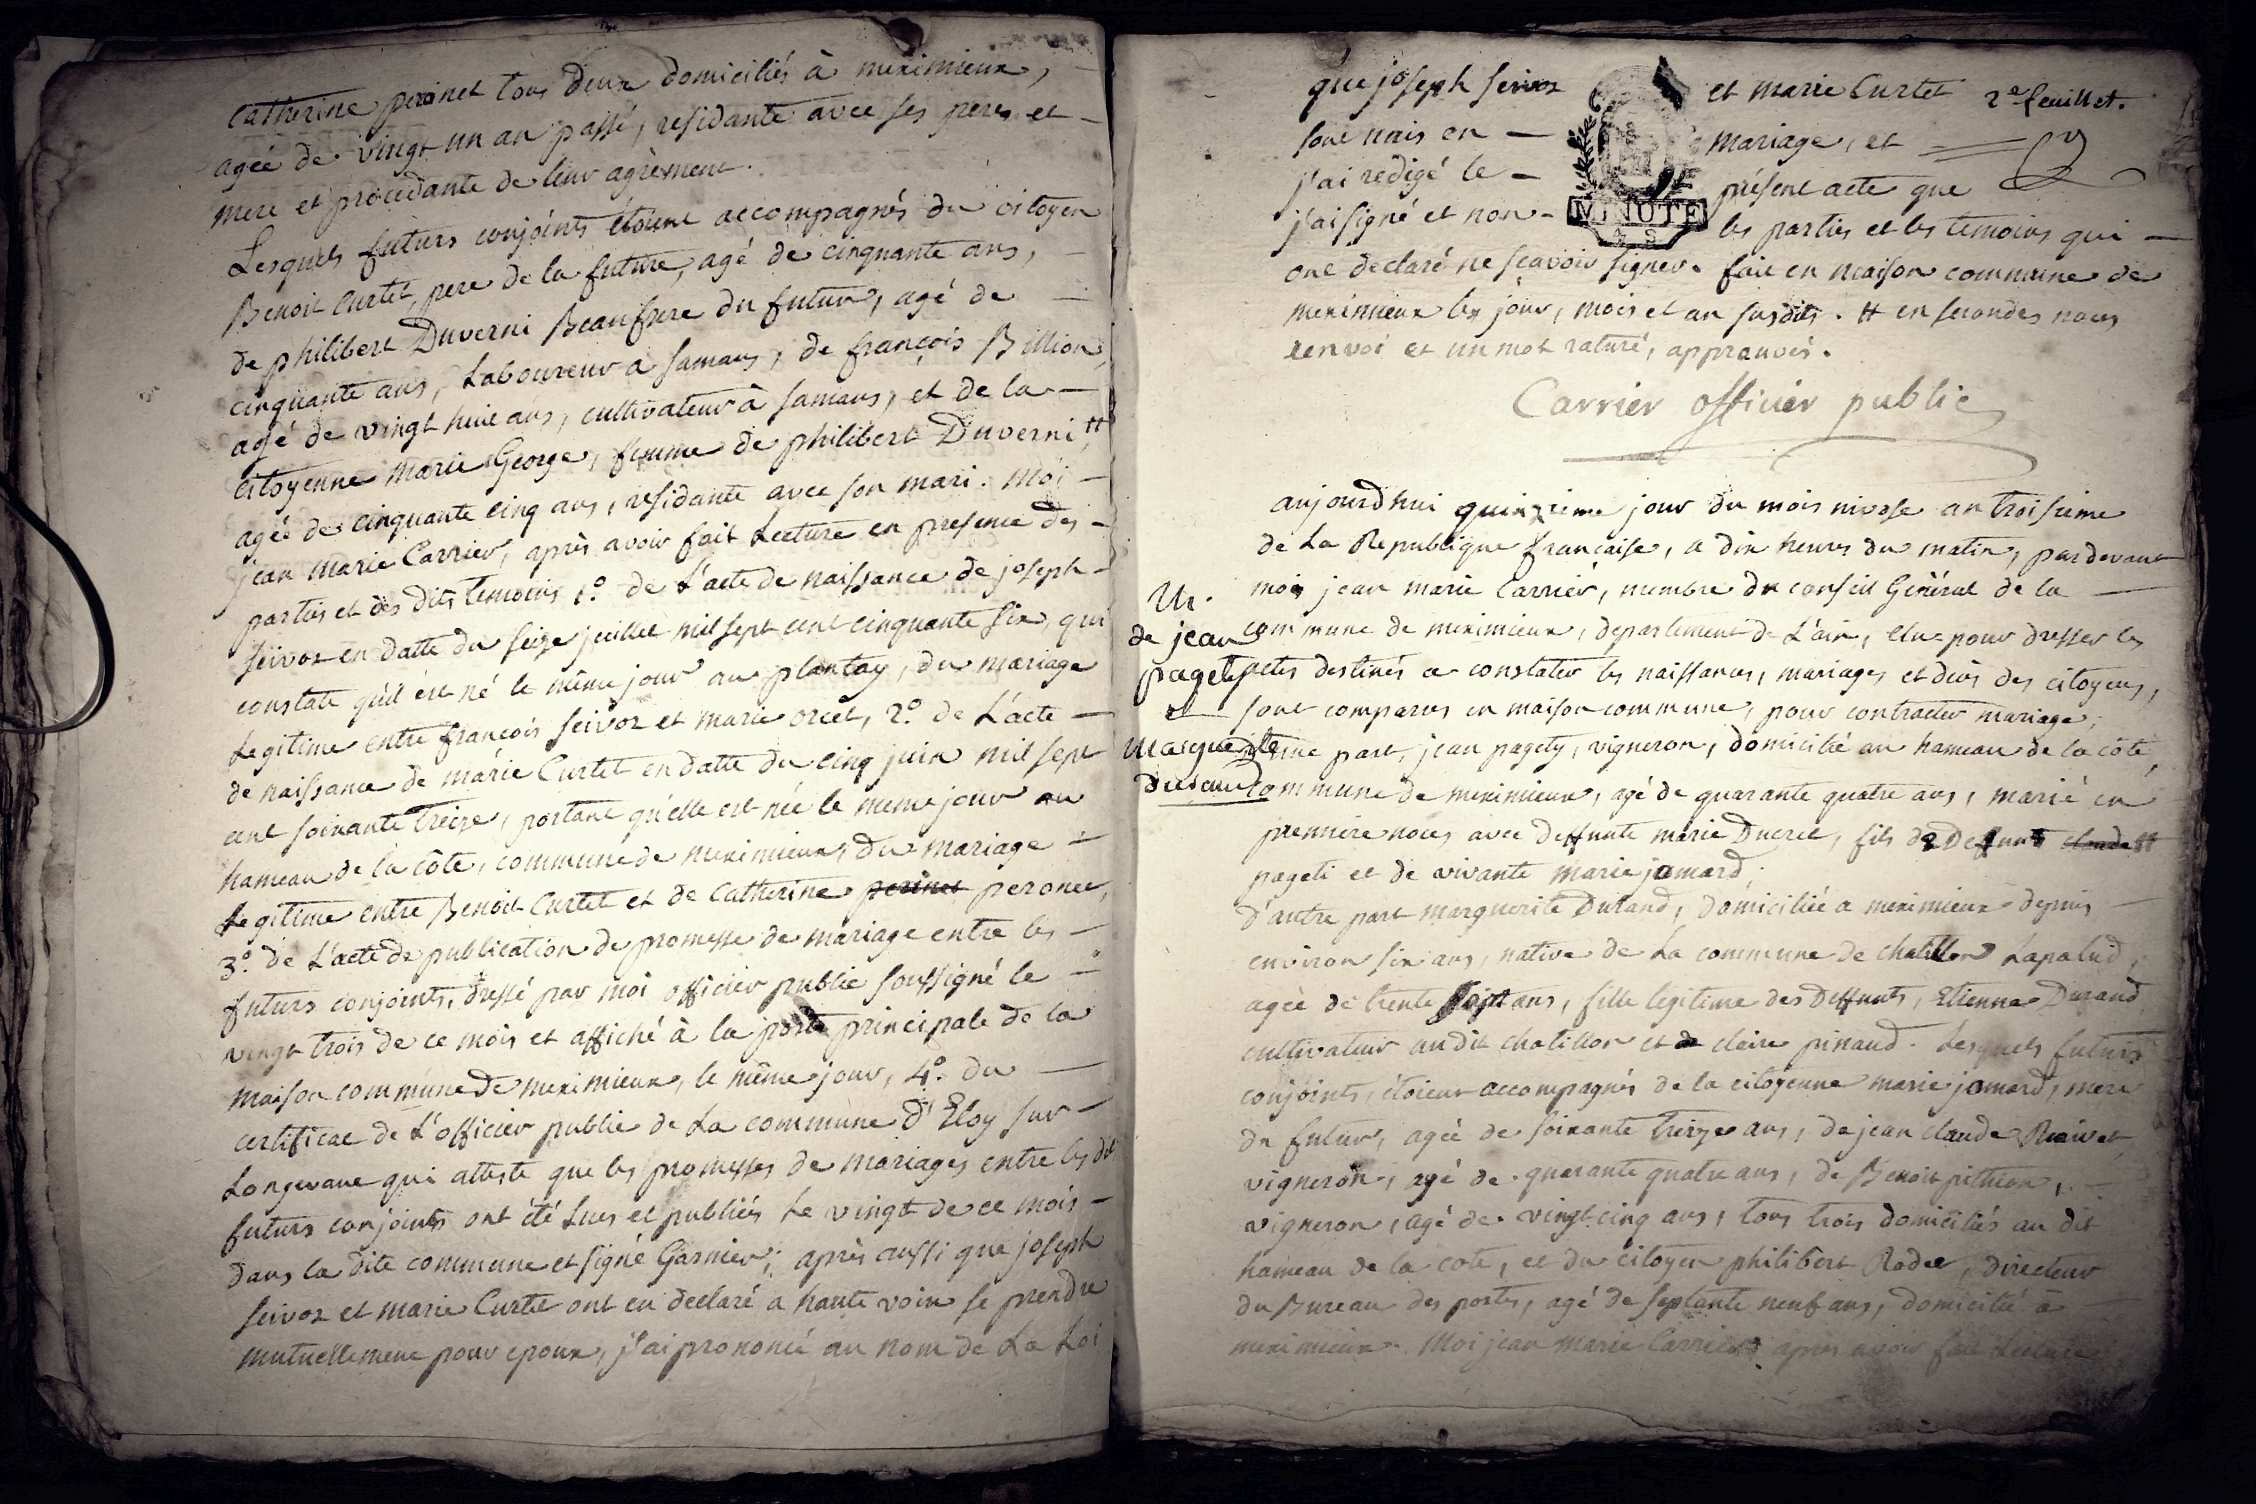 catherine peronet tous deux domiciliés à meximieux,
agée de vingt un an passé, residante avec ses pere et
mere et procedante de leur agrèment.
Lesquels futurs conjoints étoient accompagnés du citoyen
Benoit Curtet, pere de la future, agé de cinquante ans,
de philibert Duverni Beaufrere du futur, agé de
cinquante ans, Laboureur a Samans, de françois Billion,
agé de vingt huit ans, cultivateur à Samans, et de la
citoyenne Marie George, femme de philibert Duverni #
agée de cinquante cinq ans, residante avec son mari. Moi
jean marie Carrier, après avoir fait Lecture en presence des
parties et des dits temoins 1°. de L'acte de naissance de joseph
Seivoz en datte du seize juillet mil sept cent cinquante six, qui
constate qu'il est né le même jour au plantay, du mariage
Legitime entre françois Seivoz et marie orcet, 2°. de L'acte
de naissance de marie Curtet en datte du cinq juin mil sept
cent soixante treize, portant qu'elle est née le meme jour au
hameau de la côte, commune de meximieux, du mariage
Legitime entre Benoit Curtet et de Catherine perinet peronet,
3°. de L'acte de publication de promesse de mariage entre les
futurs conjoints, dressé par moi officier public soussigné le
vingt trois de ce mois et affiché à la porte principale de la
maison commune de meximieux, le même jour, 4°. du
certificat de L'officier public de La commune d'Eloy sur
Longevant qui atteste que les promesses de mariages entre les dit
futurs conjoints ont été Lues et publiés Le vingt de ce mois
dans la dite commune et signé Garnier; après aussi que joseph
Seivoz et marie Curtet ont eu declaré a haute voix se prendre
mutuellement pour epoux, j'ai prononcé au nom de La Loi
que joseph Seivoz et marie Curtet 2e. feuillet.
sont unis en mariage, et
j'ai redigé le présent acte que
j'ai signé et non les parties et les temoins qui
MINUTE
ont declaré ne sçavoir signer. fait en maison commune de
meximieux les jour, mois et an susdits. # en secondes noces
renvoi et un mot raturé, approuvés.
Carrier officier public
aujourd'hui quinzieme jour du mois nivose an troisieme
de La Republique francaise, a dix heures du matin, pardevant
moi jean marie Carrier, membre du conseil Général de la
commune de meximieux, departement de L'ain, elu pour dresser les
actes destinés a constater les naissances, mariages et decés des citoyens,
sont comparus en maison commune, pour contracter mariage,
d'une part, jean pagety, vigneron, domicilié au hameau de la côte,
commune de meximieux, agé de quarante quatre ans, marié en
premiere noces avec deffunte marie Ducret, fils de Deffunt claude #
pageti et de vivante marie jamard,
d'autre part marguerite Durand, domiciliée a meximieux depuis
environ six ans, native de La commune de chatillon Lapalud,
agée de trente sept ans, fille legitime des Deffunts, Etienne Durand
cultivateur au dit chatillon et de claire pinaud. Lesquels futurs
conjoints, étoient accompagnés de la citoyenne marie jamard, mere
du futur, agée de soixante treize ans, de jean claude
vigneron, agé de quarante quatre ans, de Benoit pithion,
vigneron, agé de vingt cinq ans, tous trois domiciliés au dit
hameau de la cote, et du citoyen philibert Rodet, directeur
du Bureau des postes, agé de septante neuf ans, domicilié à
meximieux. Moi jean marie Carrier après avoir fait Lecture
M.
de jean
pagety
et
Marguerite
Durand